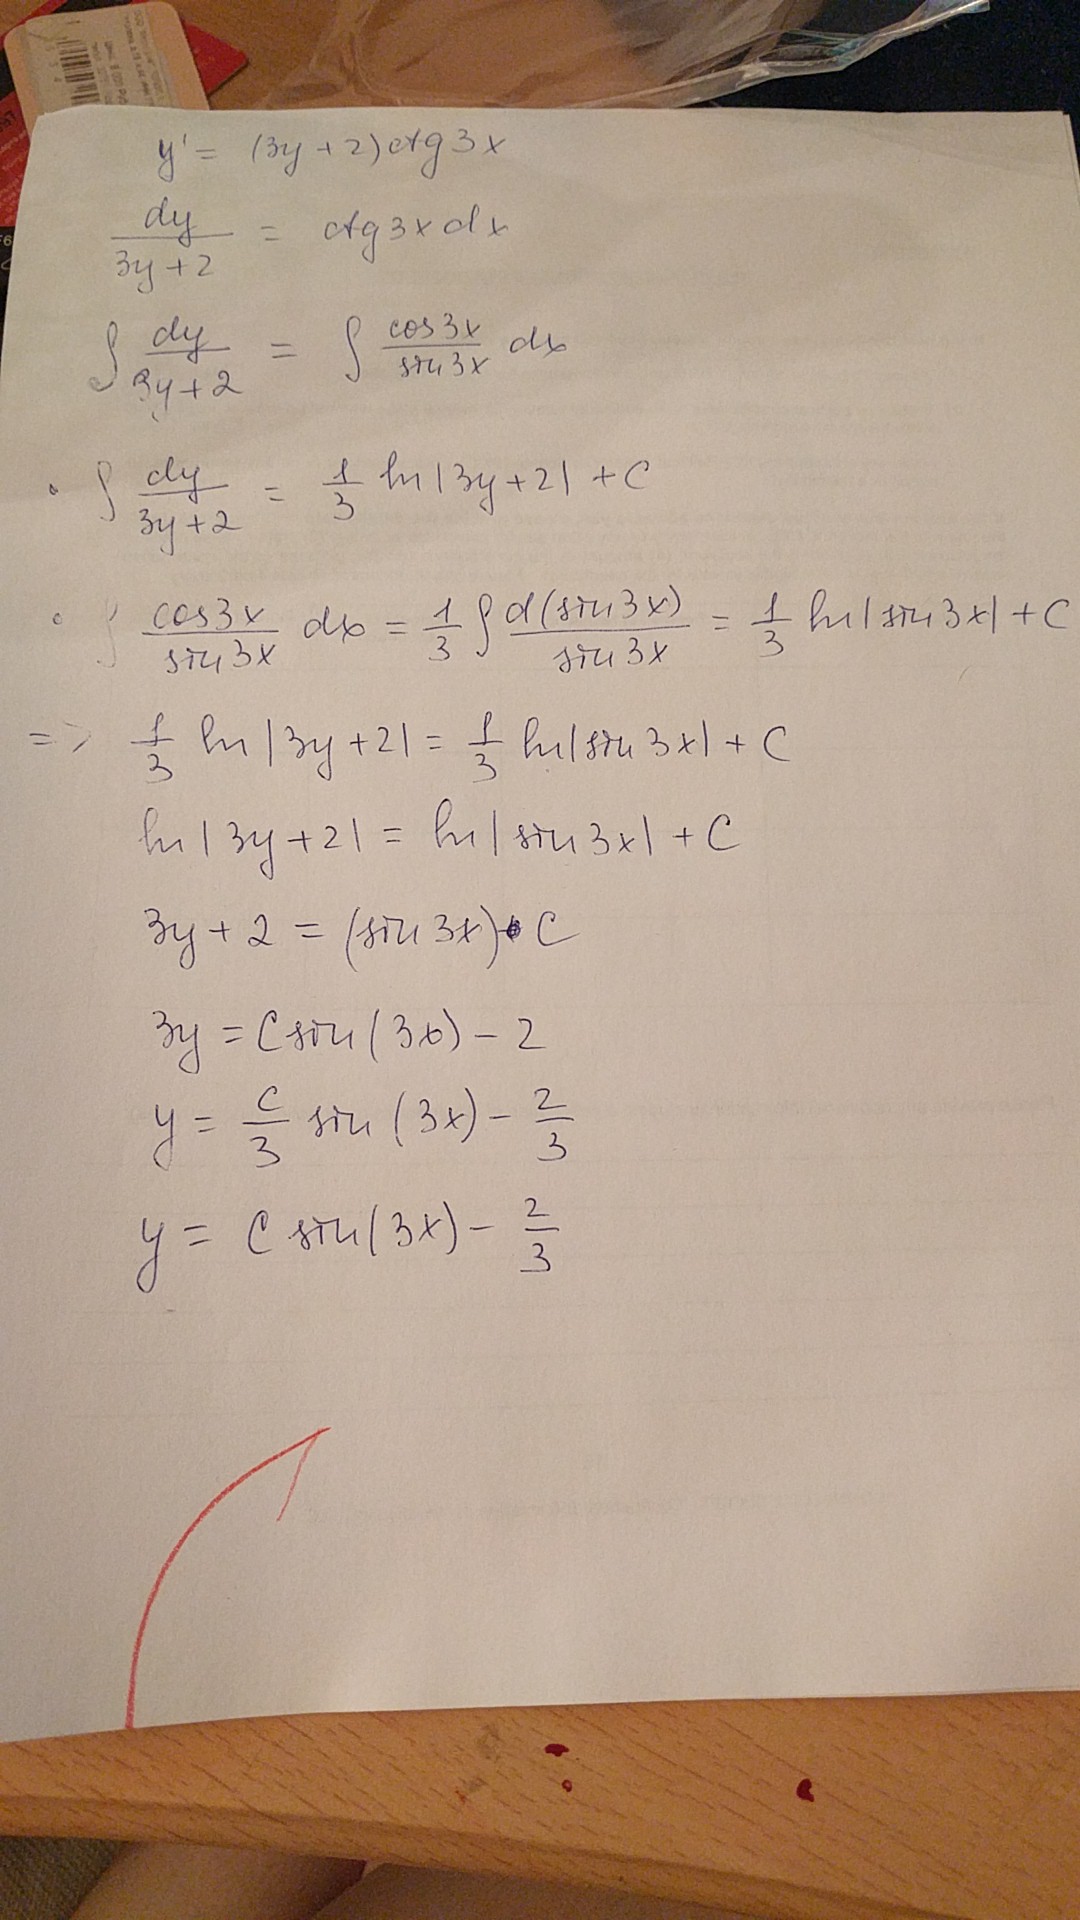 y' = (3y + 2) ctg 3x
dy / (3y + 2) = ctg 3x dx
∫ dy / (3y + 2) = ∫ cos 3x / sin 3x dx
• ∫ dy / (3y + 2) = 1/3 ln |3y + 2| + C
• ∫ cos 3x / sin 3x dx = 1/3 ∫ d(sin 3x) / sin 3x = 1/3 ln |sin 3x| + C
=> 1/3 ln |3y + 2| = 1/3 ln |sin 3x| + C
ln |3y + 2| = ln |sin 3x| + C
3y + 2 = (sin 3x) • C
3y = C sin (3x) - 2
y = C/3 sin (3x) - 2/3
y = C sin (3x) - 2/3